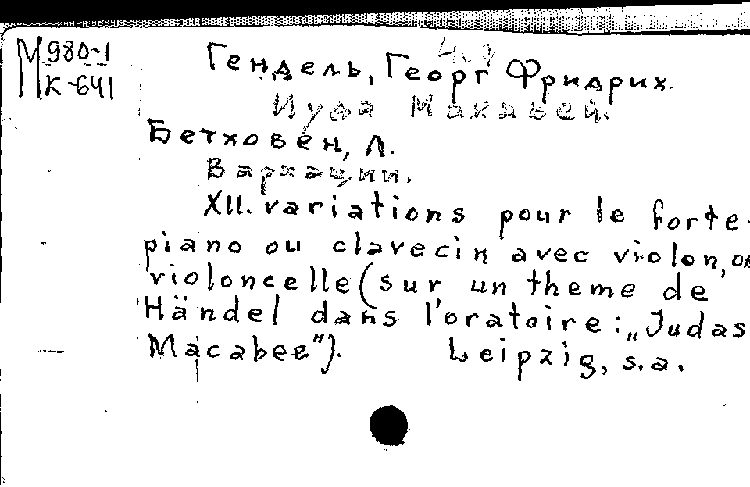 М 980-1
К-641
Гендель, Георг Фридрих.
Иуда Маккавей.
Бетховен, Л.
Вариации.
XII. variations pour le forte-
piano ou clavecin avec violon, ou
violoncelle (sur un theme de
Händel dans l'oratoire: „Judas
Macabee").
Leipzig, s.a.